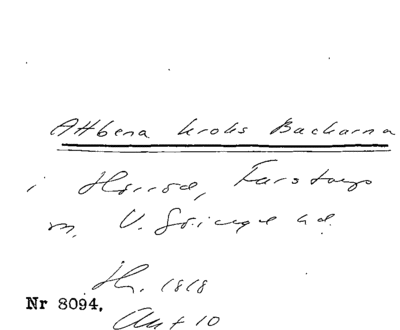 Attbena kroks Backarna
i Hörröd, Farstorps
sn, V. Göinge hd.
Hr. 1818
Nr 8094.
Akt 10